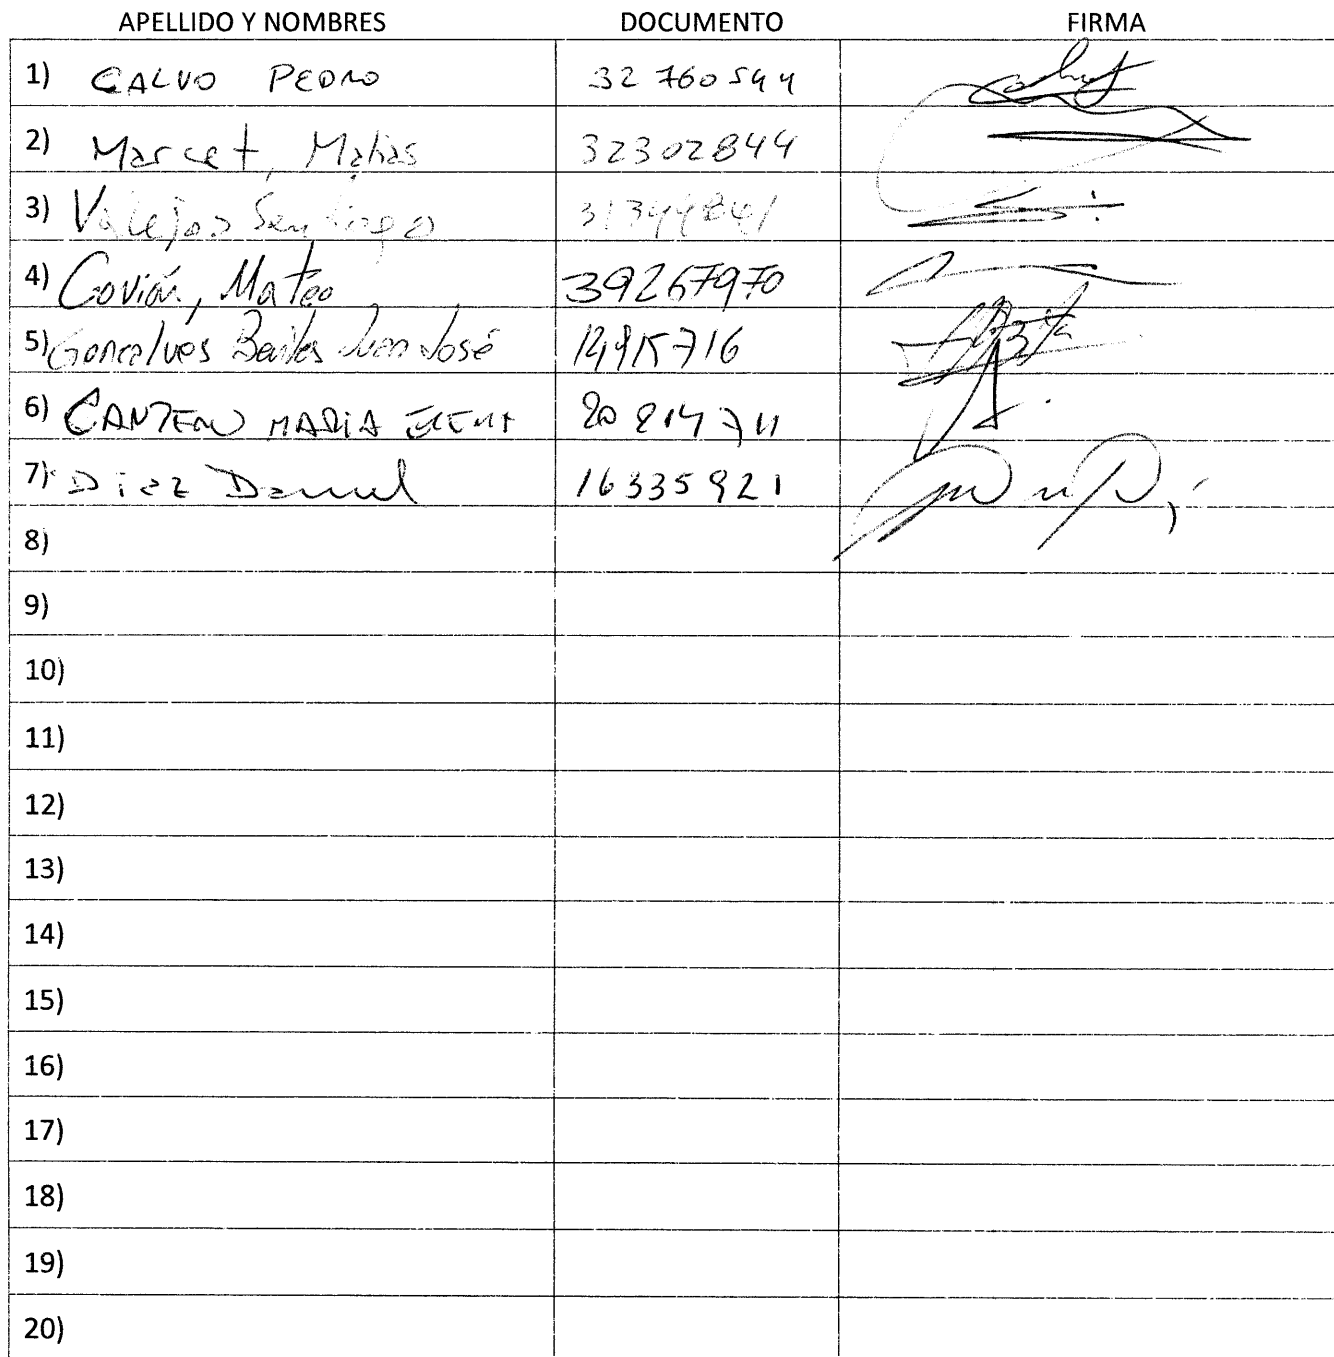 APELLIDO Y NOMBRES DOCUMENTO FIRMA
1) CALVO PEDRO 32 760 544
2) Marcet, Matias 32302844
3) Vallejos Santiago 31344841
4) Covián, Mateo 39267970
5) Goncalves Juan José
6) MARIA
7) Diez Daniel 16335921
8)
9)
10)
11)
12)
13)
14)
15)
16)
17)
18)
19)
20)